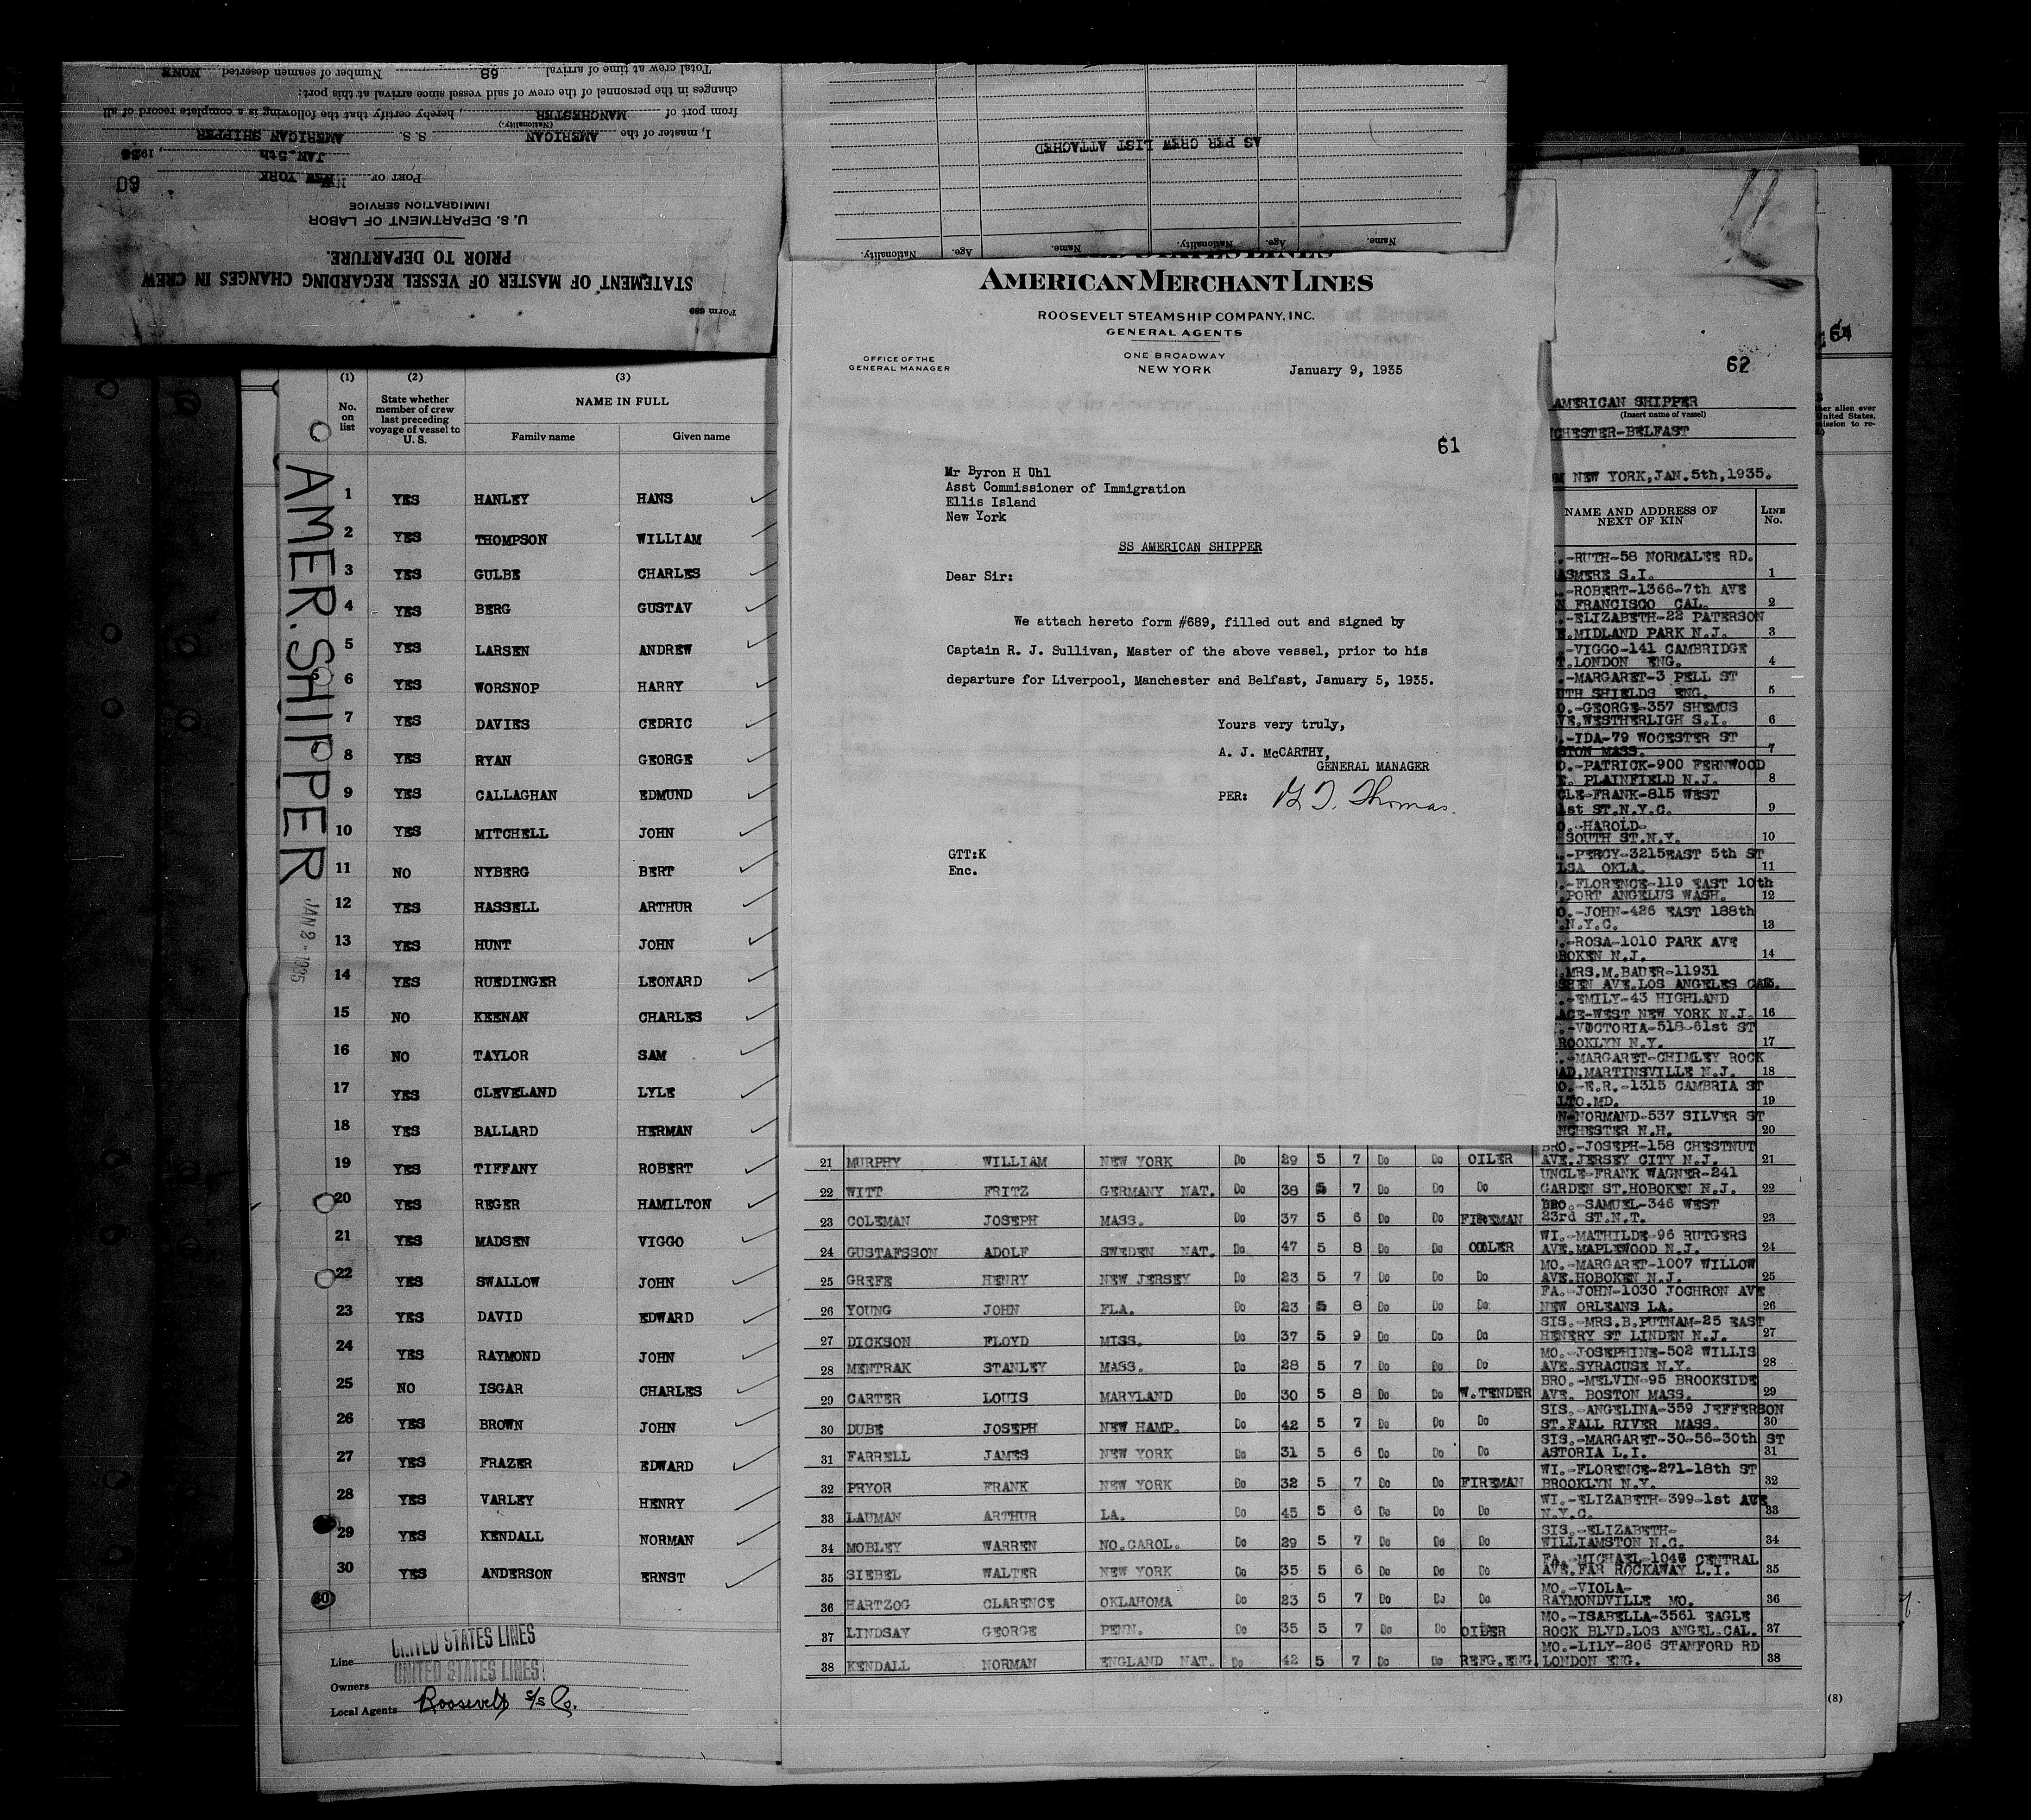 Form 689
STATEMENT OF MASTER OF VESSEL REGARDING CHANGES IN CREW
PRIOR TO DEPARTURE.
U. S. DEPARTMENT OF LABOR
IMMIGRATION SERVICE
60
PORT OF NEW YORK
JAN. 5th, 193
I, master of the AMERICAN S. S. AMERICAN SHIPPER
(Nationality)
from port of MANCHESTER, hereby certify that the following is a complete record of all
changes in the personnel of the crew of said vessel since arrival at this port:
Total crew at time of arrival 68 Number of seamen deserted NONE
Name. Age. Nationality. Name. Age. Nationality.
AS PER CREW LIST ATTACHED
AMERICAN MERCHANT LINES
ROOSEVELT STEAMSHIP COMPANY, INC.
GENERAL AGENTS
OFFICE OF THE
GENERAL MANAGER
ONE BROADWAY
NEW YORK
January 9, 1935
61
Mr Byron H Uhl
Asst Commissioner of Immigration
Ellis Island
New York
SS AMERICAN SHIPPER
Dear Sir:
We attach hereto form #689, filled out and signed by
Captain R. J. Sullivan, Master of the above vessel, prior to his
departure for Liverpool, Manchester and Belfast, January 5, 1935.
Yours very truly,
A. J. McCARTHY,
GENERAL MANAGER
PER: G T. Thomas.
GTT:K
Enc.
AMER. SHIPPER
JAN 2 - 1935
(1) (2) (3)
No. on list
State whether member of crew last preceding voyage of vessel to U. S.
NAME IN FULL
Family name Given name
1 YES HANLEY HANS
2 YES THOMPSON WILLIAM
3 YES GULBE CHARLES
4 YES BERG GUSTAV
5 YES LARSEN ANDREW
6 YES WORSNOP HARRY
7 YES DAVIES CEDRIC
8 YES RYAN GEORGE
9 YES CALLAGHAN EDMUND
10 YES MITCHELL JOHN
11 NO NYBERG BERT
12 YES HASSELL ARTHUR
13 YES HUNT JOHN
14 YES RUEDINGER LEONARD
15 NO KEENAN CHARLES
16 NO TAYLOR SAM
17 YES CLEVELAND LYLE
18 YES BALLARD HERMAN
19 YES TIFFANY ROBERT
20 YES REGER HAMILTON
21 YES MADSEN VIGGO
22 YES SWALLOW JOHN
23 YES DAVID EDWARD
24 YES RAYMOND JOHN
25 NO ISGAR CHARLES
26 YES BROWN JOHN
27 YES FRAZER EDWARD
28 YES VARLEY HENRY
29 YES KENDALL NORMAN
30 YES ANDERSON ERNST
30
Line UNITED STATES LINES
Owners UNITED STATES LINES
Local Agents Roosevelt S/S Co.
64
62
AMERICAN SHIPPER
(Insert name of vessel)
CHESTER-BELFAST
NEW YORK, JAN. 5th, 1935.
NAME AND ADDRESS OF NEXT OF KIN LINE No.
-RUTH-58 NORMALEE RD.
ASMERE S.I. 1
-ROBERT-1366-7th AVE
N FRANCISCO CAL. 2
-ELIZABETH-22 PATERSON
E.MIDLAND PARK N.J. 3
-VIGGO-141 CAMBRIDGE
T.LONDON ENG. 4
-MARGARET-3 PELL ST
UTH SHIELDS ENG. 5
O.-GEORGE-357 SHEMUS
VE.WESTHERLIGH S.I. 6
-IDA-79 WOCESTER ST
STON MASS. 7
O.-PATRICK-900 FERNWOOD
E. PLAINFIELD N.J. 8
CLE-FRANK-815 WEST
1st ST.N.Y.C. 9
O.-HAROLD-
SOUTH ST.N.Y. 10
-PERCY-3215EAST 5th ST
LSA OKLA. 11
-FLORENCE-119 EAST 10th
.PORT ANGELUS WASH. 12
O.-JOHN-426 EAST 188th
.N.Y.C. 13
.-ROSA-1010 PARK AVE
BOKEN N.J. 14
.MRS.M.BAUER-11931
SHEN AVE.LOS ANGELES CAL.
.-EMILY-43 HIGHLAND
ACE-WEST NEW YORK N.J. 16
.-VICTORIA-518-61st ST
ROOKLYN N.Y. 17
.-MARGARET-CHIMLEY ROCK
AD.MARTINSVILLE N.J. 18
O.-E.R.-1315 CAMBRIA ST
LTO.MD. 19
N-NORMAND-537 SILVER ST
NCHESTER N.H. 20
21 MURPHY WILLIAM NEW YORK Do 29 5 7 Do Do OILER BRO.-JOSEPH-158 CHESTNUT AVE.JERSEY CITY N.J. 21
22 WITT FRITZ GERMANY NAT. Do 38 5 7 Do Do Do UNCLE-FRANK WAGNER-241 GARDEN ST.HOBOKEN N.J. 22
23 COLEMAN JOSEPH MASS. Do 37 5 6 Do Do FIREMAN BRO.-SAMUEL-346 WEST 23rd ST.N.T. 23
24 GUSTAFSSON ADOLF SWEDEN NAT. Do 47 5 8 Do Do OILER WI.-MATHILDE-96 RUTGERS AVE.MAPLEWOOD N.J. 24
25 GREFE HENRY NEW JERSEY Do 23 5 7 Do Do Do MO.-MARGARET-1007 WILLOW AVE.HOBOKEN N.J. 25
26 YOUNG JOHN FLA. Do 23 5 8 Do Do Do FA.-JOHN-1030 JOCHRON AVE NEW ORLEANS LA. 26
27 DICKSON FLOYD MISS. Do 37 5 9 Do Do Do SIS.-MRS.B.PUTNAM-25 EAST HENERY ST LINDEN N.J. 27
28 MENTRAK STANLEY MASS. Do 28 5 7 Do Do Do MO.-JOSEPHINE-502 WILLIS AVE.SYRACUSE N.Y. 28
29 CARTER LOUIS MARYLAND Do 30 5 8 Do Do W.TENDER BRO.-MELVIN-95 BROOKSIDE AVE. BOSTON MASS. 29
30 DUBE JOSEPH NEW HAMP. Do 42 5 7 Do Do Do SIS.-ANGELINA-359 JEFFERSON ST.FALL RIVER MASS. 30
31 FARRELL JAMES NEW YORK Do 31 5 6 Do Do Do SIS.-MARGARET-30-56-30th ST ASTORIA L.I. 31
32 PRYOR FRANK NEW YORK Do 32 5 7 Do Do FIREMAN WI.-FLORENCE-271-18th ST BROOKLYN N.Y. 32
33 LAUMAN ARTHUR LA. Do 45 5 6 Do Do Do WI.-ELIZABETH-399-1st AVE N.Y.C. 33
34 MOBLEY WARREN NO.CAROL. Do 29 5 7 Do Do Do SIS.-ELIZABETH- WILLIAMSTON N.C. 34
35 SIEBEL WALTER NEW YORK Do 35 5 6 Do Do Do FA.-MICHAEL-1046 CENTRAL AVE.FAR ROCKAWAY L.I. 35
36 HARTZOG CLARENCE OKLAHOMA Do 23 5 7 Do Do Do MO.-VIOLA- RAYMONDVILLE MO. 36
37 LINDSAY GEORGE PENN. Do 35 5 7 Do Do OILER MO.-ISABELLA-3561 EAGLE ROCK BLVD.LOS ANGEL.CAL. 37
38 KENDALL NORMAN ENGLAND NAT. Do 42 5 7 Do Do REFG.ENG. MO.-LILY-206 STANFORD RD LONDON ENG. 38
(8)